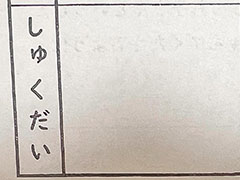 しゅくだい